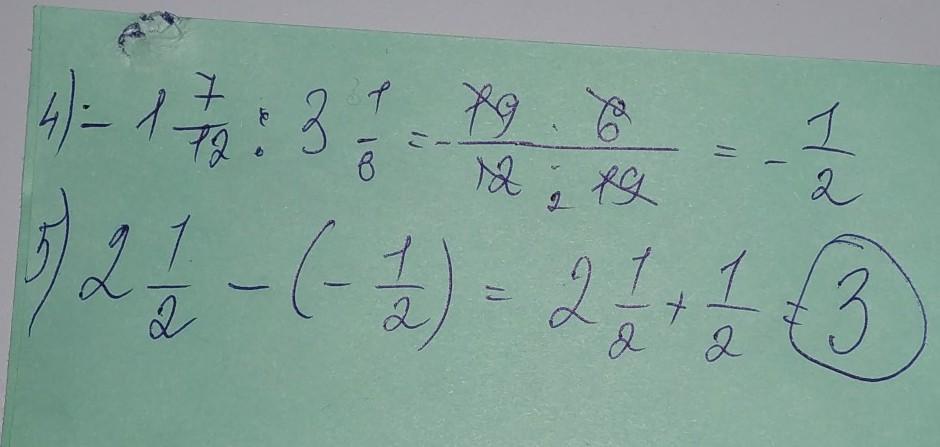 4) - 1 7/12 : 3 1/6 = - 19 · 6 / 12 · 19 = - 1/2
5) 2 1/2 - (- 1/2) = 2 1/2 + 1/2 = 3